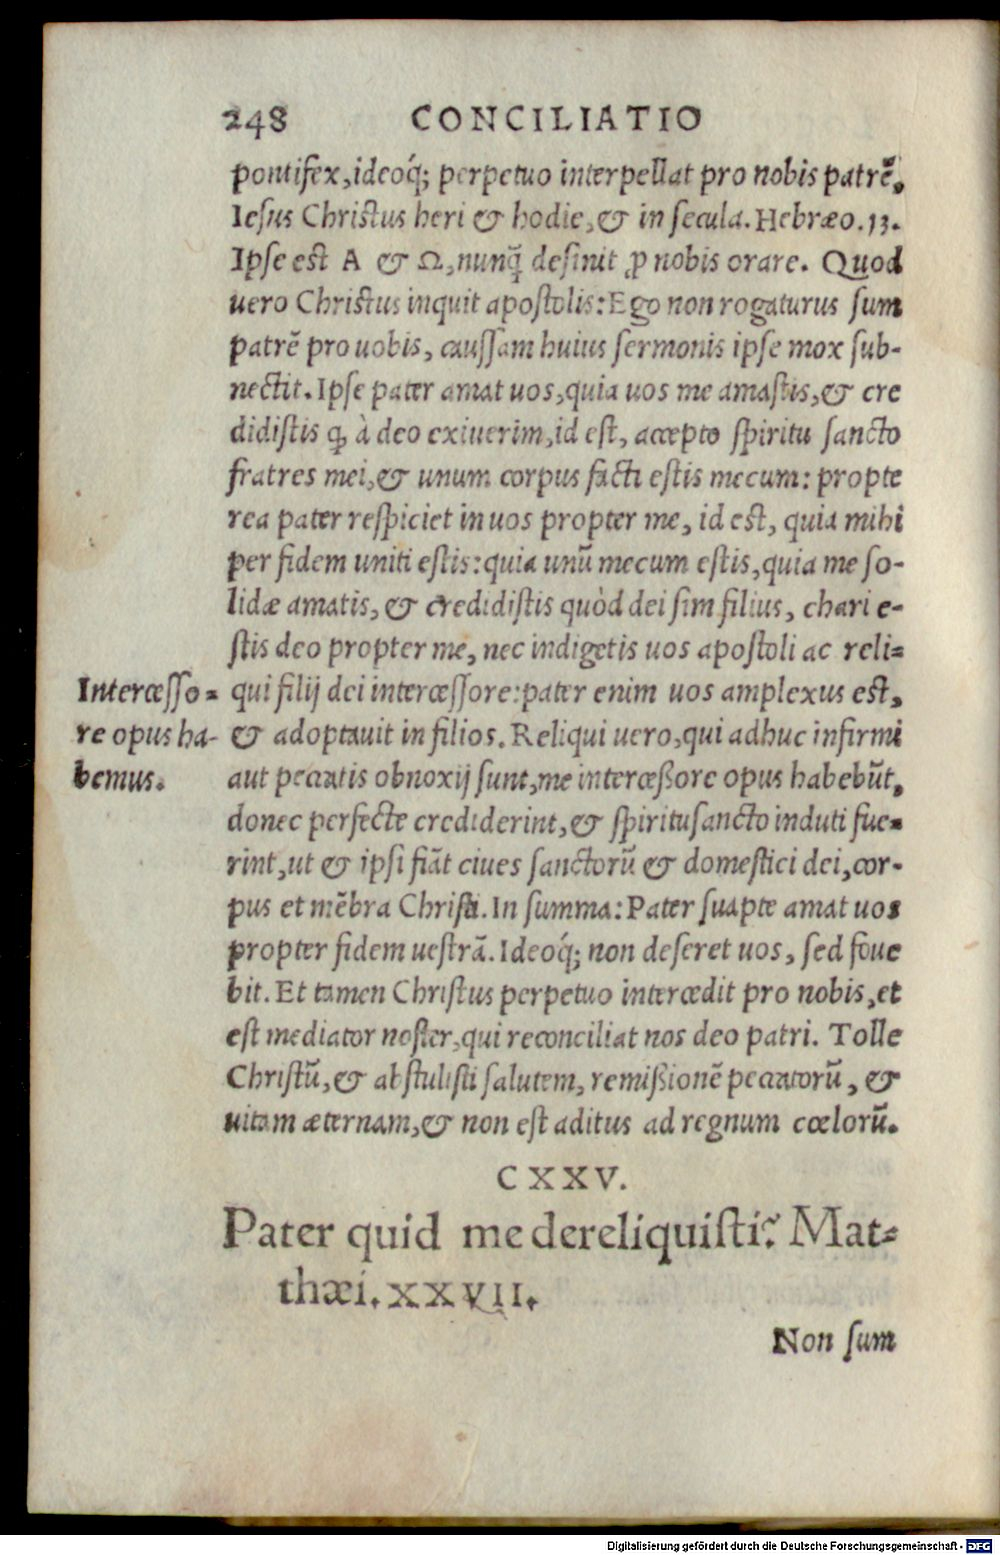 248 CONCILIATIO
pontifex, ideoq́; perpetuo interpellat pro nobis patrẽ.
Iesus Christus heri & hodie, & in secula. Hebræo. 13.
Ipse est A & Ω, nunq̃ desinit ꝓ nobis orare. Quod
uero Christus inquit apostolis: Ego non rogaturus sum
patrẽ pro uobis, caussam huius sermonis ipse mox sub-
nectit. Ipse pater amat uos, quia uos me amastis, & cre
didistis ꝙ à deo exiuerim, id est, accepto spiritu sancto
fratres mei, & unum corpus facti estis mecum: propte
rea pater respiciet in uos propter me, id est, quia mihi
per fidem uniti estis: quia unũ mecum estis, quia me so-
lidæ amatis, & credidistis quòd dei sim filius, chari e-
stis deo propter me, nec indigetis uos apostoli ac reli-
qui filij dei intercessore: pater enim uos amplexus est,
& adoptauit in filios. Reliqui uero, qui adhuc infirmi
aut peccatis obnoxij sunt, me interceßore opus habebũt,
donec perfecte crediderint, & spiritusancto induti fue-
rint, ut & ipsi fiãt ciues sanctorũ & domestici dei, cor-
pus et mẽbra Christi. In summa: Pater suapte amat uos
propter fidem uestrã. Ideoq́; non deseret uos, sed foue
bit. Et tamen Christus perpetuo intercedit pro nobis, et
est mediator noster, qui reconciliat nos deo patri. Tolle
Christũ, & abstulisti salutem, remißionẽ peccatorũ, &
uitam æternam, & non est aditus ad regnum cœlorũ.
Intercesso-
re opus ha-
bemus.
CXXV.
Pater quid me dereliquisti? Mat-
thæi. XXVII.
Non sum
Digitalisierung gefördert durch die Deutsche Forschungsgemeinschaft - DFG